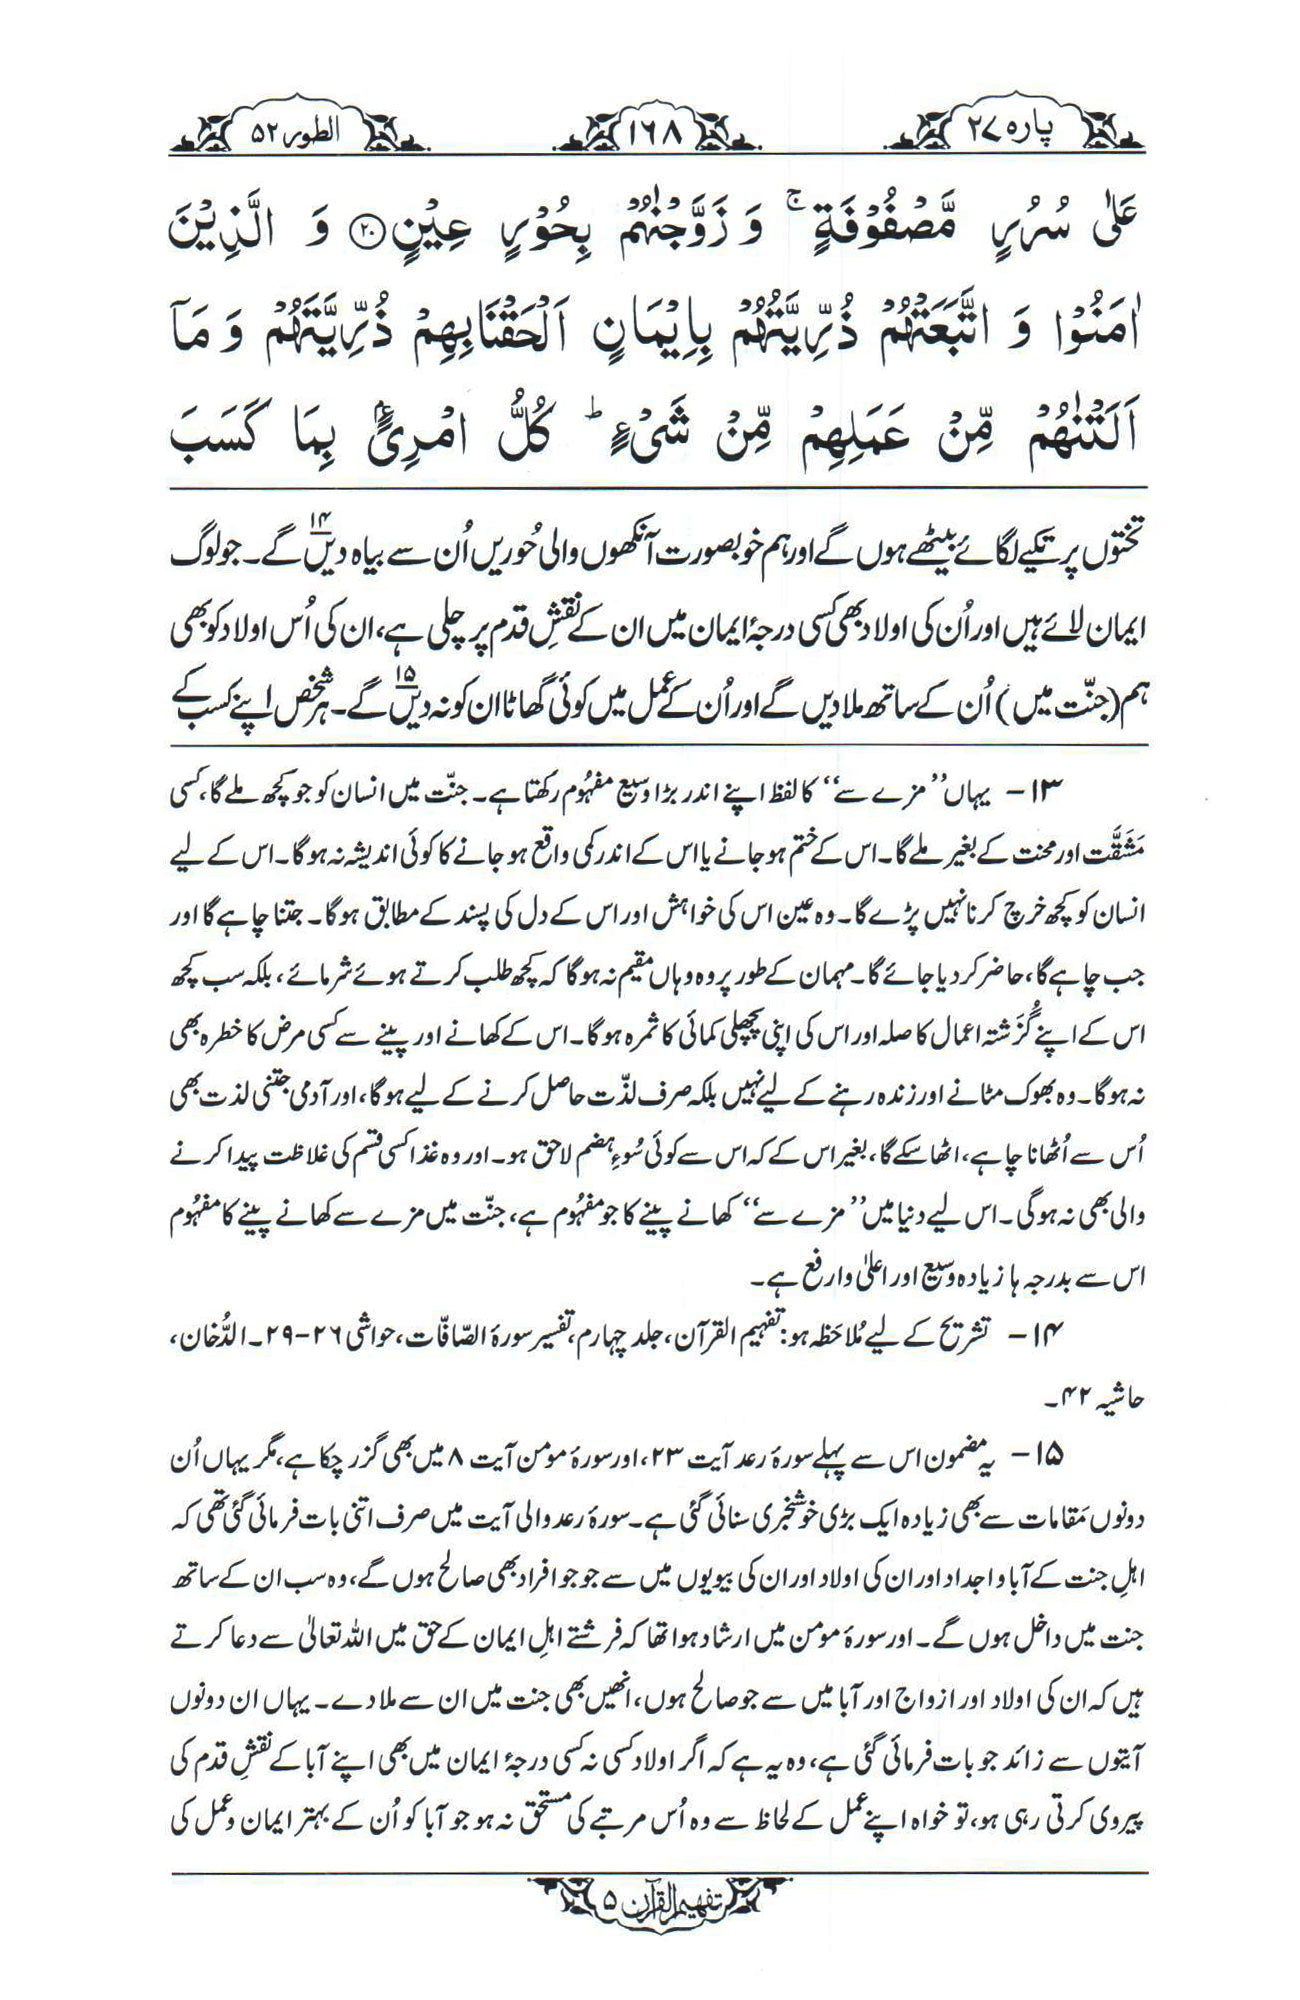 پارہ ۲۷
۱۶۸
الطور ۵۲
عَلٰى سُرُرٍ مَّصْفُوْفَةٍ ۚ وَ زَوَّجْنٰهُمْ بِحُوْرٍ عِيْنٍ ۝۲۰ وَ الَّذِيْنَ
اٰمَنُوْا وَ اتَّبَعَتْهُمْ ذُرِّيَّتُهُمْ بِاِيْمَانٍ اَلْحَقْنَا بِهِمْ ذُرِّيَّتَهُمْ وَ مَاۤ
اَلَتْنٰهُمْ مِّنْ عَمَلِهِمْ مِّنْ شَيْءٍ ؕ كُلُّ امْرِئٍۢ بِمَا كَسَبَ
تختوں پر تکیے لگائے بیٹھے ہوں گے اور ہم خوبصورت آنکھوں والی حُوریں اُن سے بیاہ دیں۱۴ گے۔ جو لوگ
ایمان لائے ہیں اور اُن کی اولاد بھی کسی درجۂ ایمان میں ان کے نقشِ قدم پر چلی ہے، ان کی اُس اولاد کو بھی
ہم (جنّت میں) اُن کے ساتھ ملا دیں گے اور اُن کے عمل میں کوئی گھاٹا ان کو نہ دیں۱۵ گے۔ ہر شخص اپنے کسب کے
۱۳ – یہاں ’’مزے سے‘‘ کا لفظ اپنے اندر بڑا وسیع مفہُوم رکھتا ہے۔ جنّت میں انسان کو جو کچھ ملے گا، کسی
مَشَقَّت اور محنت کے بغیر ملے گا۔ اس کے ختم ہو جانے یا اس کے اندر کمی واقع ہو جانے کا کوئی اندیشہ نہ ہوگا۔ اس کے لیے
انسان کو کچھ خرچ کرنا نہیں پڑے گا۔ وہ عین اس کی خواہش اور اس کے دل کی پسند کے مطابق ہوگا۔ جتنا چاہے گا اور
جب چاہے گا، حاضر کر دیا جائے گا۔ مہمان کے طور پر وہ وہاں مقیم نہ ہوگا کہ کچھ طلب کرتے ہوئے شرمائے، بلکہ سب کچھ
اس کے اپنے گُزَشتہ اعمال کا صلہ اور اس کی اپنی پچھلی کمائی کا ثمرہ ہوگا۔ اس کے کھانے اور پینے سے کسی مرض کا خطرہ بھی
نہ ہوگا۔ وہ بھوک مٹانے اور زندہ رہنے کے لیے نہیں بلکہ صرف لذّت حاصل کرنے کے لیے ہوگا، اور آدمی جتنی لذت بھی
اُس سے اُٹھانا چاہے، اٹھا سکے گا، بغیر اس کے کہ اس سے کوئی سُوءِ ہضم لاحق ہو۔ اور وہ غذا کسی قسم کی غلاظت پیدا کرنے
والی بھی نہ ہوگی۔ اس لیے دنیا میں ’’مزے سے‘‘ کھانے پینے کا جو مفہُوم ہے، جنّت میں مزے سے کھانے پینے کا مفہُوم
اس سے بدرجہ ہا زیادہ وسیع اور اعلیٰ وارفع ہے۔
۱۴ – تشریح کے لیے مُلاحَظہ ہو: تفہیم القرآن، جلد چہارم، تفسیر سورۂ الصّافّات، حواشی ۲۶–۲۹۔ الدُّخان،
حاشیہ ۴۲۔
۱۵ – یہ مضمون اس سے پہلے سورۂ رعد آیت ۲۳، اور سورۂ مومن آیت ۸ میں بھی گزر چکا ہے، مگر یہاں اُن
دونوں مَقامات سے بھی زیادہ ایک بڑی خوشخبری سنائی گئی ہے۔ سورۂ رعد والی آیت میں صرف اتنی بات فرمائی گئی تھی کہ
اہلِ جنت کے آبا و اجداد اور ان کی اولاد اور ان کی بیویوں میں سے جو جو افراد بھی صالح ہوں گے، وہ سب ان کے ساتھ
جنت میں داخل ہوں گے۔ اور سورۂ مومن میں ارشاد ہوا تھا کہ فرشتے اہلِ ایمان کے حق میں اللہ تعالیٰ سے دعا کرتے
ہیں کہ ان کی اولاد اور ازواج اور آبا میں سے جو صالح ہوں، انھیں بھی جنت میں ان سے ملا دے۔ یہاں ان دونوں
آیتوں سے زائد جو بات فرمائی گئی ہے، وہ یہ ہے کہ اگر اولاد کسی نہ کسی درجۂ ایمان میں بھی اپنے آبا کے نقشِ قدم کی
پیروی کرتی رہی ہو، تو خواہ اپنے عمل کے لحاظ سے وہ اُس مرتبے کی مستحق نہ ہو جو آبا کو اُن کے بہتر ایمان و عمل کی
تفہیم القرآن ۵